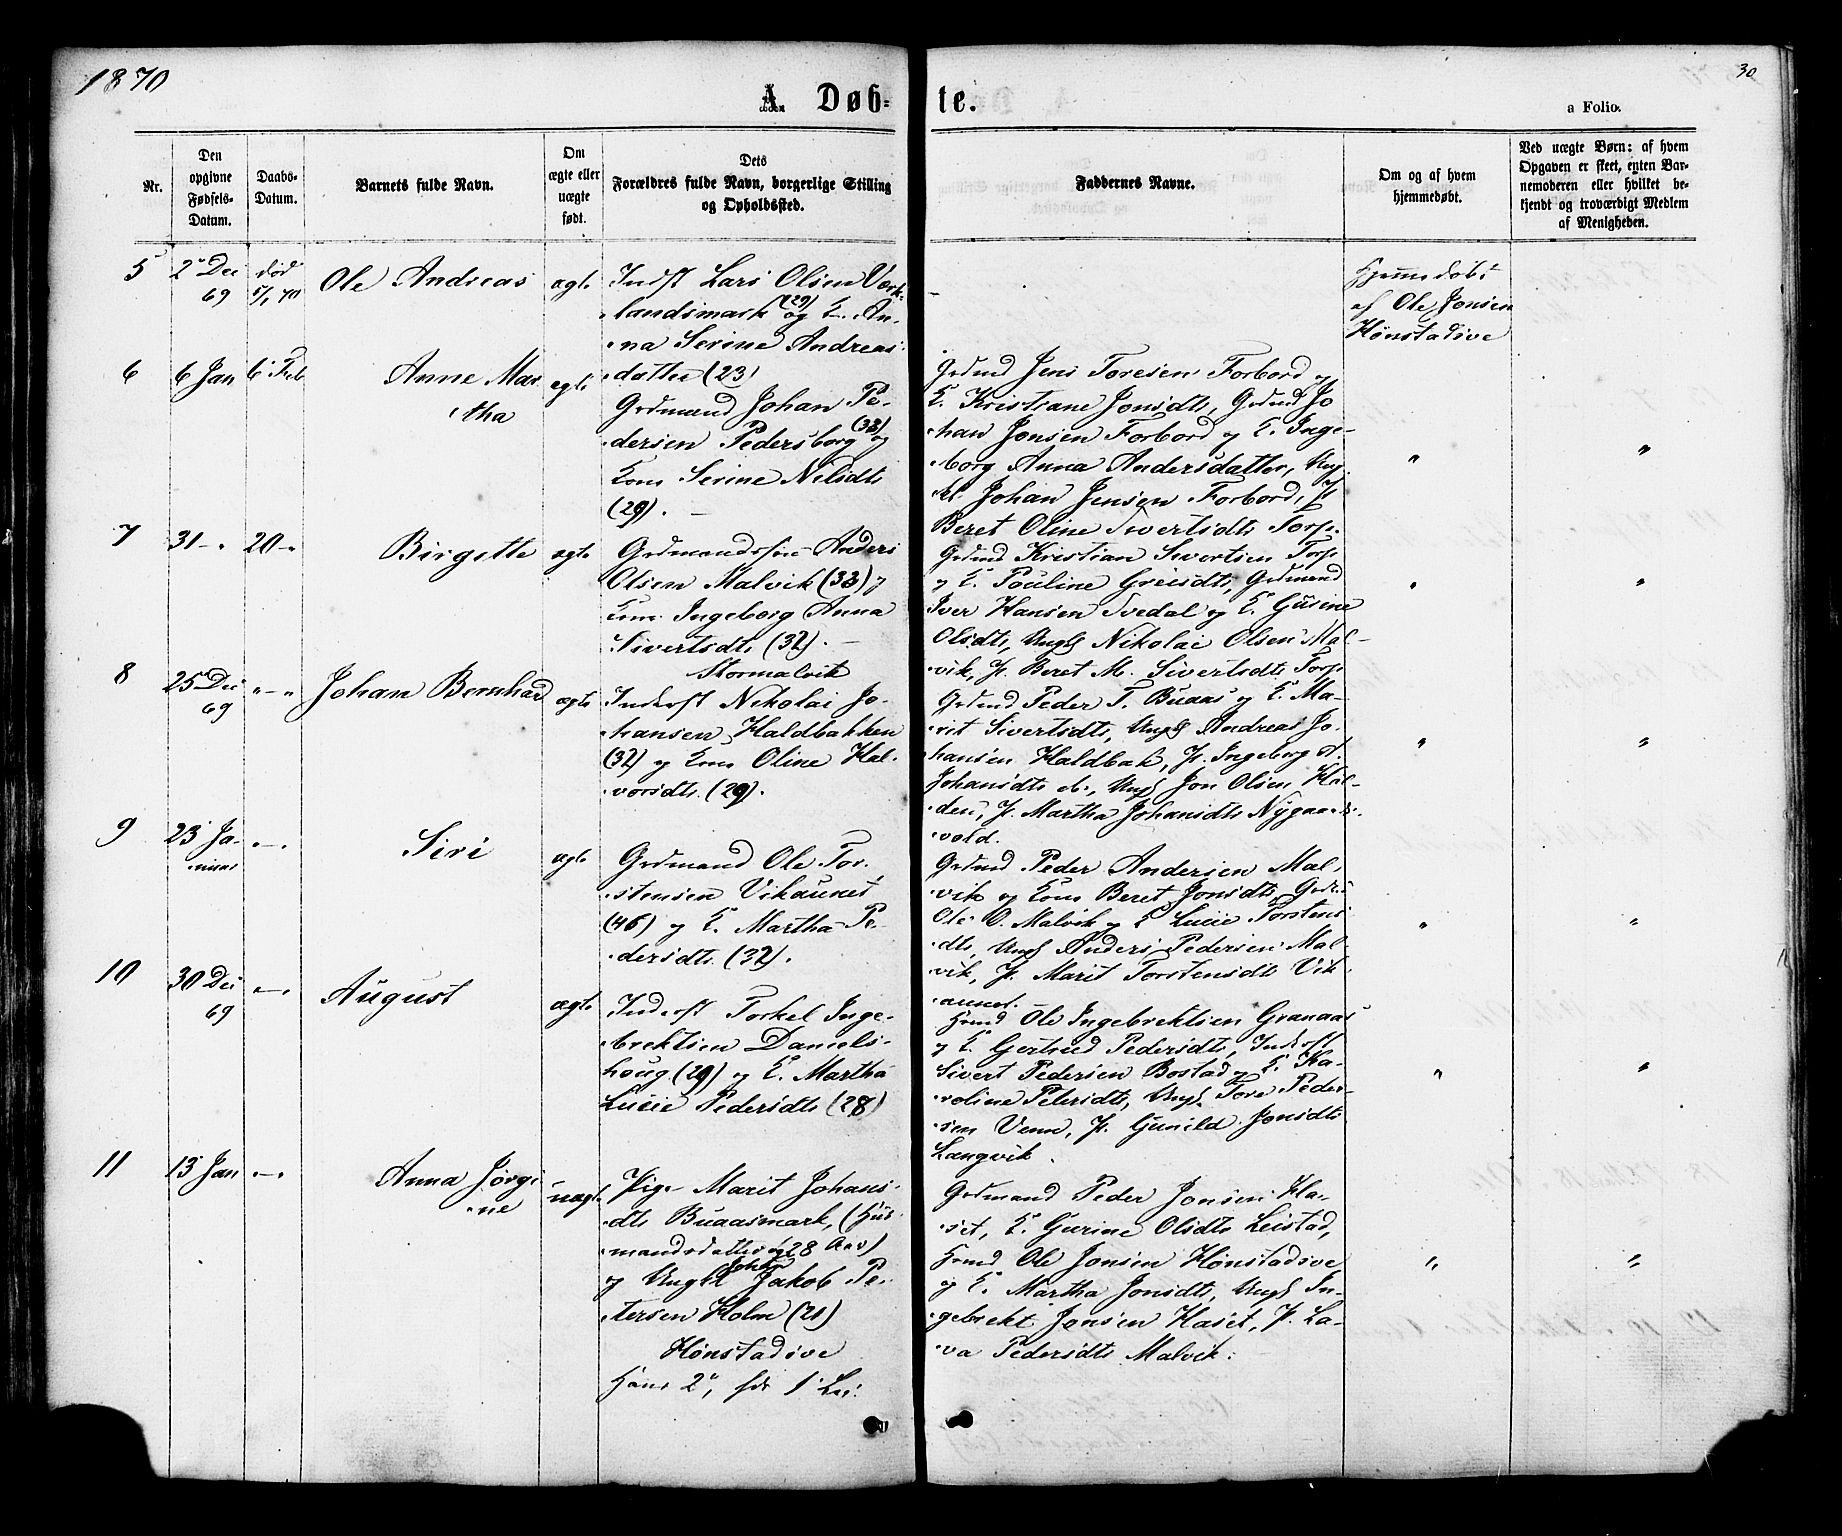 1870
30
A. Døb-
te.
a Folio.
Nr.
Den opgivne Fødsels-Datum.
Daabs-Datum.
Barnets fulde Navn.
Om ægte eller uægte født.
Dets Forældres fulde Navn, borgerlige Stilling og Opholdssted.
Faddernes Navne.
Om og af hvem hjemmedøbt.
Ved uægte Børn: af hvem Opgaven er skeet, enten Barnemoderen eller hvilket bekjendt og troværdigt Medlem af Menigheden.
5
2 Dec
69
død
5/1 70
Ole Andreas
ægte
Inderst Lars Olsen
landsmark (29) og K. An-
na Serine Andreas-
datter (23)
Hjemmedøbt
af Ole Jonsen
Hønstadøve
6
6 Jan
6 Feb
Anne Mar-
tha
ægte
Grdmand Johan Pe-
dersen Pedersborg (33) og
Kone Serine Nilsdtr
(29). —
Grdmd Jens Toresen Forbord og
K. Kristiane Jonsdtr, Grdmd Jo
han Jonsen Forbord og K. Inge-
borg Anna Andersdatter, Ung-
kl Johan Jensen Forbord, P.
Beret Oline Sivertsdtr Torp.
"
"
7
31 — "
20 — "
Birgitte
ægte
Grdmandssøn Anders
Olsen Malvik (33) og
Kone Ingeborg Anna
Sivertsdtr (32). —
Stormalvik
Grdmd Kristian Sivertsen Torp
og K. Pauline Greisdtr, Grdmand
Iver Hansen Svedal og K. Gusine
Olsdtr, Ungk Nikolai Olsen Mal-
vik, P. Beret M. Sivertsdtr Torp
"
"
8
25 Dec
69
" — "
Johan Bernhard
ægte
Inderst Nikolai Jo-
hansen Haldbakken
(32) og Kone Oline Hal-
vorsdtr. (29).
Grdmd Peder T. Buaas og K. Ma-
rit Sivertsdtr, Ungk Andreas Jo-
hansen Haldbak, P. Ingeborg
Johansdtr do., Ungk Jon Olsen Hal-
den, P. Martha Johansdtr Nygaards-
vold.
"
"
9
23 Ja-
nuar
" — "
Siri
ægte
Grdmand Ole Tor-
stensen Vikaunet
(46) og K. Martha Pe-
dersdtr. (32).
Grdmd Peder Andersen Mal-
vik og Kone Beret Jonsdtr, Grdmd
Ole O. Malvik og K Lucie Torstens
dtr, Ungk Anders Pedersen Mal-
vik, P. Marit Torstensdtr Vik
aunet.
"
"
10
30 Dec
69
" — "
August
ægte
Inderst Torkel Inge-
brektsen Daniels-
houg. (29) og K. Martha
Lucie Pedersdtr (28)
Hmd Ole Ingebrektsen Granaas
og K. Gertrud Pedersdtr, Inderst
Sivert Pedersen Bostad og K. Ka-
roline Petersdtr, Ungk. Tore Peder-
sen Venn, P. Gunild Jonsdtr
Langvik.
"
"
11
13 Jan
" — "
Anna Jørgi
ne
uægte
Pige Marit Johans-
dtr Buaasmark, (Hus-
mandsdatter 28 Aar)
og Ungkl Johan Jakob Pe-
tersen Holm (21)
Hønstadøve
Hans 2", 1"
Grdmand Peder Jonsen Ha-
set, K. Gurine Olsdtr Leistad,
Hmd Ole Jonsen Hønstadøve
og K. Martha Jonsdtr, Ungk In-
gebrekt Jonsen Haset, P. La-
va Pedersdtr Malvik.
"
"